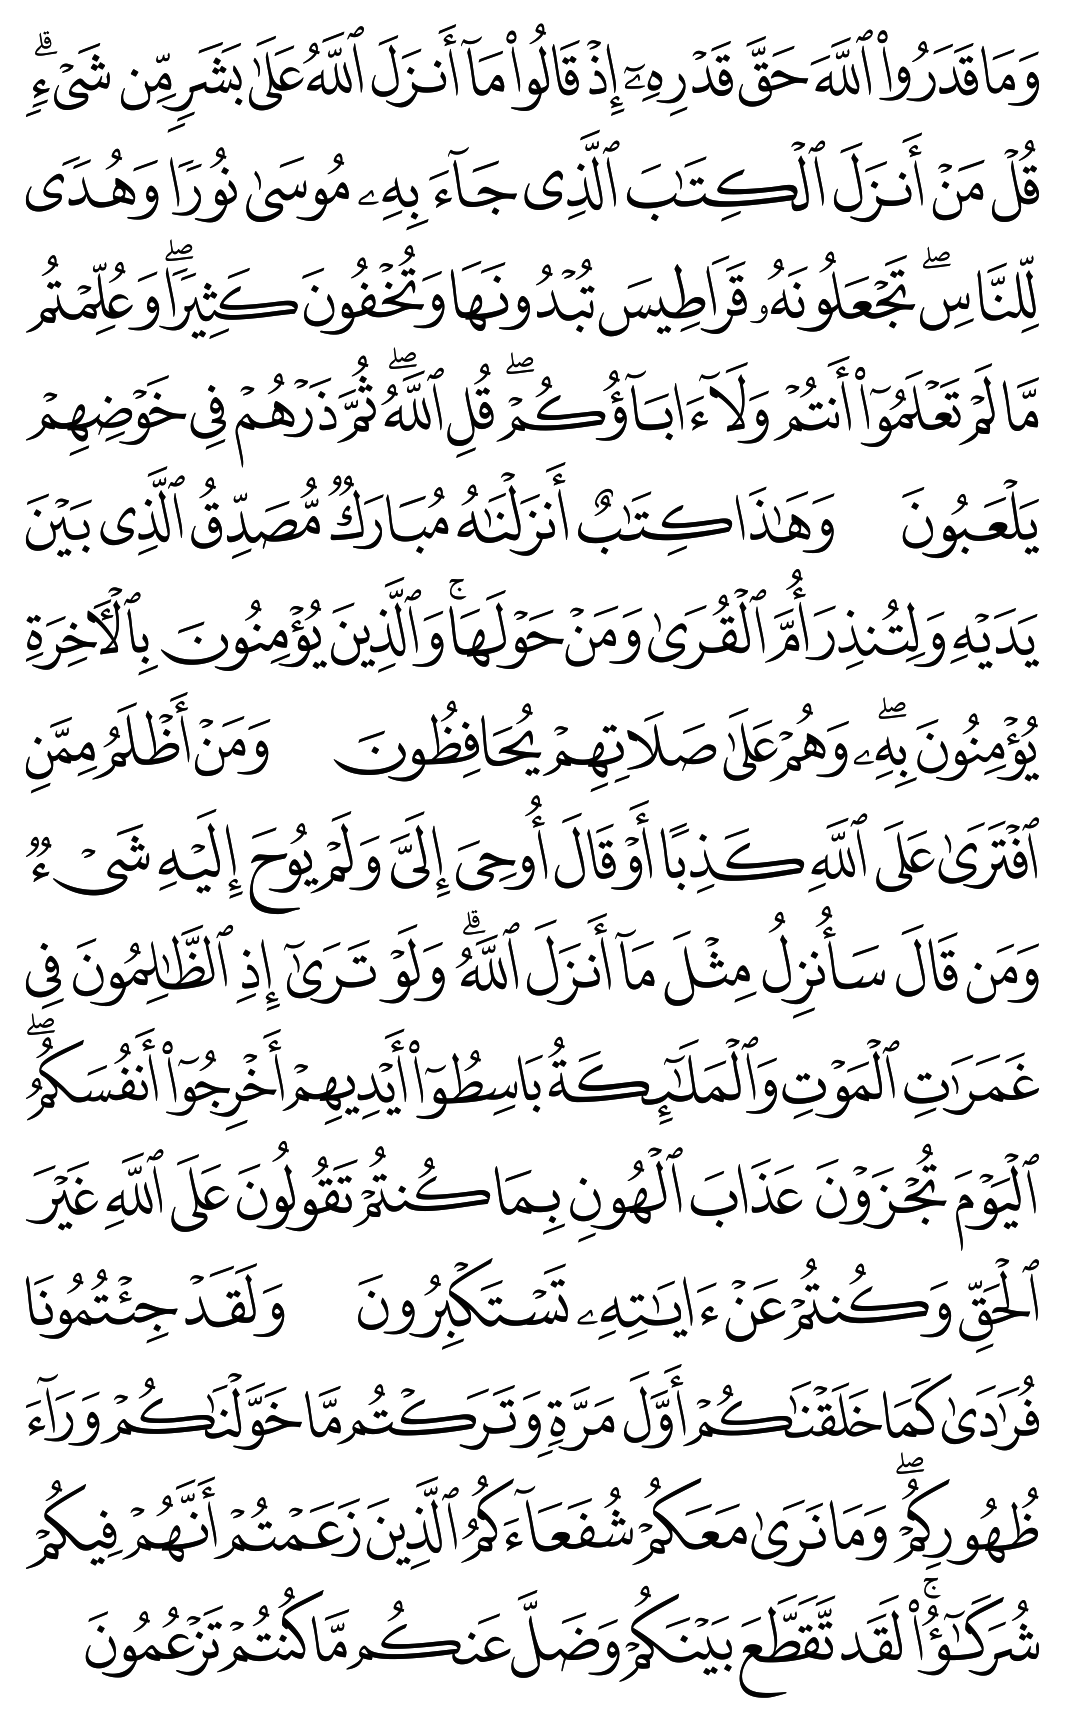 وَمَا قَدَرُوا۟ ٱللَّهَ حَقَّ قَدْرِهِۦٓ إِذْ قَالُوا۟ مَآ أَنزَلَ ٱللَّهُ عَلَىٰ بَشَرٍ مِّن شَىْءٍ ۗ
قُلْ مَنْ أَنزَلَ ٱلْكِتَـٰبَ ٱلَّذِى جَآءَ بِهِۦ مُوسَىٰ نُورًا وَهُدًى
لِّلنَّاسِ ۖ تَجْعَلُونَهُۥ قَرَاطِيسَ تُبْدُونَهَا وَتُخْفُونَ كَثِيرًا ۖ وَعُلِّمْتُم
مَّا لَمْ تَعْلَمُوٓا۟ أَنتُمْ وَلَآ ءَابَآؤُكُمْ ۖ قُلِ ٱللَّهُ ۖ ثُمَّ ذَرْهُمْ فِى خَوْضِهِمْ
يَلْعَبُونَ وَهَـٰذَا كِتَـٰبٌ أَنزَلْنَـٰهُ مُبَارَكٌ مُّصَدِّقُ ٱلَّذِى بَيْنَ
يَدَيْهِ وَلِتُنذِرَ أُمَّ ٱلْقُرَىٰ وَمَنْ حَوْلَهَا ۚ وَٱلَّذِينَ يُؤْمِنُونَ بِٱلْـَٔاخِرَةِ
يُؤْمِنُونَ بِهِۦ ۖ وَهُمْ عَلَىٰ صَلَاتِهِمْ يُحَافِظُونَ وَمَنْ أَظْلَمُ مِمَّنِ
ٱفْتَرَىٰ عَلَى ٱللَّهِ كَذِبًا أَوْ قَالَ أُوحِىَ إِلَىَّ وَلَمْ يُوحَ إِلَيْهِ شَىْءٌ
وَمَن قَالَ سَأُنزِلُ مِثْلَ مَآ أَنزَلَ ٱللَّهُ ۗ وَلَوْ تَرَىٰٓ إِذِ ٱلظَّـٰلِمُونَ فِى
غَمَرَٰتِ ٱلْمَوْتِ وَٱلْمَلَـٰٓئِكَةُ بَاسِطُوٓا۟ أَيْدِيهِمْ أَخْرِجُوٓا۟ أَنفُسَكُمُ ۖ
ٱلْيَوْمَ تُجْزَوْنَ عَذَابَ ٱلْهُونِ بِمَا كُنتُمْ تَقُولُونَ عَلَى ٱللَّهِ غَيْرَ
ٱلْحَقِّ وَكُنتُمْ عَنْ ءَايَـٰتِهِۦ تَسْتَكْبِرُونَ وَلَقَدْ جِئْتُمُونَا
فُرَٰدَىٰ كَمَا خَلَقْنَـٰكُمْ أَوَّلَ مَرَّةٍ وَتَرَكْتُم مَّا خَوَّلْنَـٰكُمْ وَرَآءَ
ظُهُورِكُمْ ۖ وَمَا نَرَىٰ مَعَكُمْ شُفَعَآءَكُمُ ٱلَّذِينَ زَعَمْتُمْ أَنَّهُمْ فِيكُمْ
شُرَكَـٰٓؤُا۟ ۚ لَقَد تَّقَطَّعَ بَيْنَكُمْ وَضَلَّ عَنكُم مَّا كُنتُمْ تَزْعُمُونَ